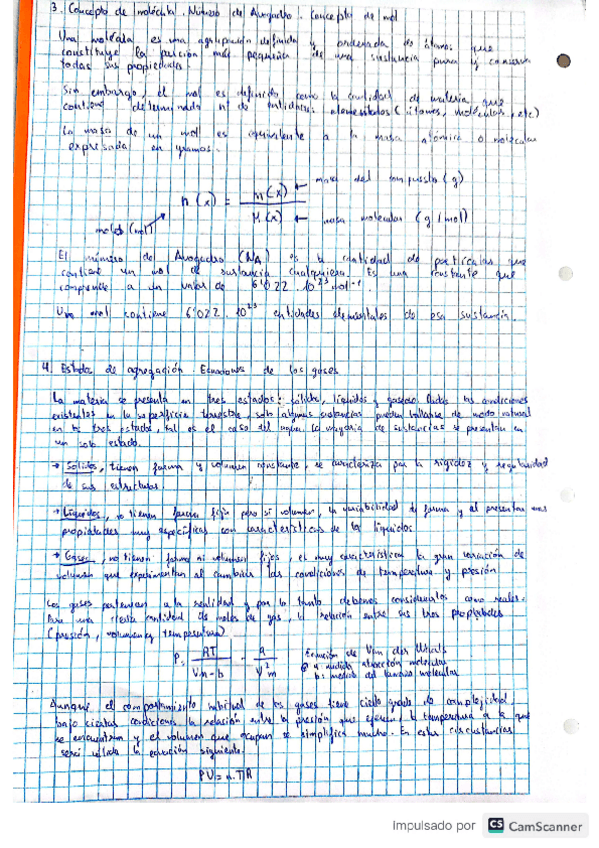 3. Concepto de molécula. Número de Avogadro. Concepto de mol
Una molécula es una agrupación definida y ordenada de átomos que
constituye la porción más pequeña de una sustancia pura y conserva
todas sus propiedades.
Sin embargo, el mol es definido como la cantidad de materia que
contiene determinado nº de entidades elementales (átomos, moléculas, etc)
La masa de un mol es equivalente a la masa atómica o molecular
expresada en gramos.
n(x) = m(x) / M(x)
masa del compuesto (g)
masa molecular (g/mol)
moles (mol)
El número de Avogadro (NA) es la cantidad de partículas que
contiene un mol de sustancia cualquiera. Es una constante que
corresponde a un valor de 6'022 · 10^23 mol^-1.
Un mol contiene 6'022 · 10^23 entidades elementales de esa sustancia.
4. Estados de agregación. Ecuaciones de los gases
La materia se presenta en tres estados: sólido, líquidos y gaseoso. Dadas las condiciones
existentes en la superficie terrestre, solo algunas sustancias pueden hallarse de modo natural
en los tres estados, tal es el caso del agua. La mayoría de sustancias se presentan en
un solo estado.
→ Sólidos, tienen forma y volumen constante, se caracteriza por la rigidez y regularidad
de sus estructuras.
→ Líquidos, no tienen forma fija pero sí volumen, la variabilidad de forma y el presentar unas
propiedades muy específicas son características de los líquidos
→ Gases, no tienen forma ni volumen fijos, es muy característica la gran variación de
volumen que experimentan al cambiar las condiciones de temperatura y presión
Los gases pertenecen a la realidad y por lo tanto debemos considerarlos como reales.
Para una cierta cantidad de moles de gas, la relación entre sus tres propiedades
(presión, volumen y temperatura)
P = RT / Vm - b - a / V²m
Ecuación de Van der Waals
a medida atracción molecular
b: medida del tamaño molecular
Aunque el comportamiento habitual de los gases tiene cierto grado de complejidad,
bajo ciertas condiciones la relación entre la presión que ejercen, la temperatura a la que
se encuentran y el volumen que ocupan se simplifica mucho. En estas circunstancias
será válida la ecuación siguiente.
PV = n.TR
Impulsado por CS CamScanner